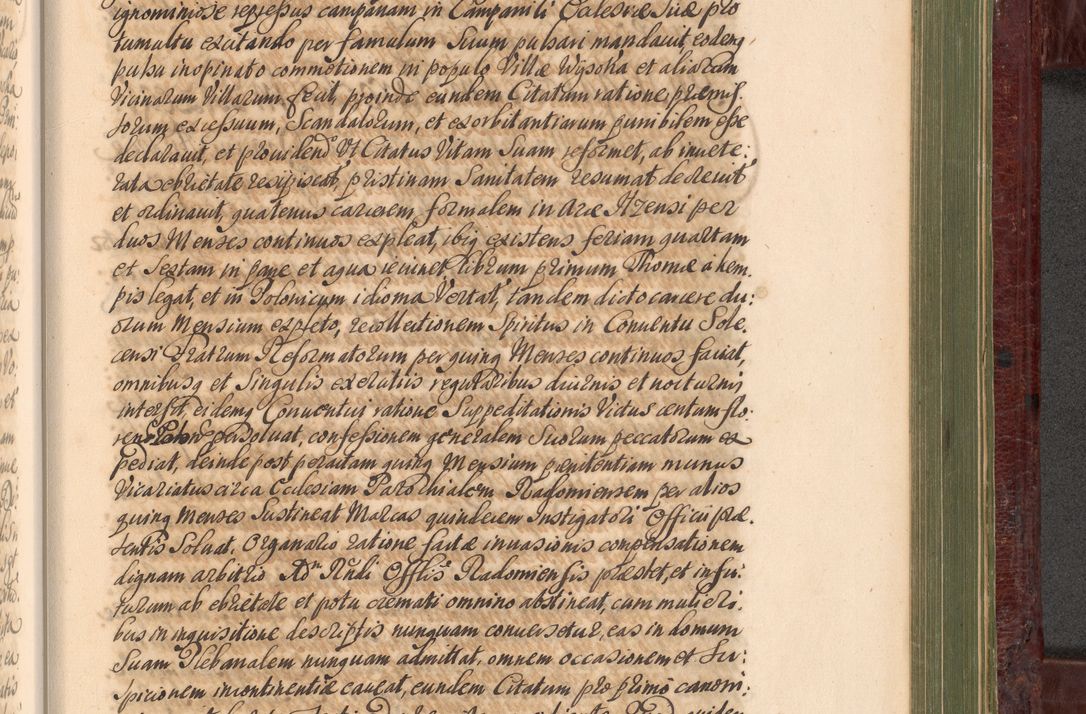 ignominiose regressus campanam in Campanili Ecclesiæ Suæ pro
tumultu excitando per famulum Suum pulsari mandavit, eodemq
pulsu inopinato commotionem in populo Villæ Wysoka et aliarum
Vicinarum Villarum fecit, proinde eundem Citatum ratione præmis-
sorum excessuum, Scandalorum, et exorbitantiarum punibilem esse
declaravit, et providendo Vt Citatus Vitam Suam reformet, ab invete:
rata ebrietate resipiscat, pristinam Sanitatem resumat decrevit
et ordinavit, quatenus carcerem formalem in Arce Ilzensi per
duos Menses continuos expleat, ibiq existens feriam quartam
et Sextam in pane et aqua ieiunet, librum primum Thomæ a kem.
pis legat, et in Polonicum idioma Vertat, tandem dicto carcere du:
orum Mensium expleto, recollectionem Spiritus in Conventu Sole.
censi Fratrum Reformatorum per quinq Menses continuos faciat,
omnibusq et Singulis exercitiis regularibus diurnis et nocturnis
intersit, eidemq Conventui ratione Suppeditationis Victus centum flo.
renos persoluat, confessionem generalem Suorum peccatorum ex
pediat, deinde post peractam quinq Mensium pænitentiam munus
Vicariatus circa Ecclesiam Parochialem Radomiensem per alios
quinq Menses Sustineat Marcas quindecem Instigatori Officii præ.
sentis Soluat. Organario ratione factæ invasionis compensationem
dignam arbitrio Adm Rndi Offlis Radomiensis præstet, et in fu:
turum ab ebrietate et potu cremati omnino abstineat, cum mulieri.
bus in inquisitione descriptis nunquam conversetur, eas in domum
Suam Plebanalem nunquam admittat, omnem occasionem et Su:
spicionem incontinentiæ caveat, eundem Citatum pro primo canoni: